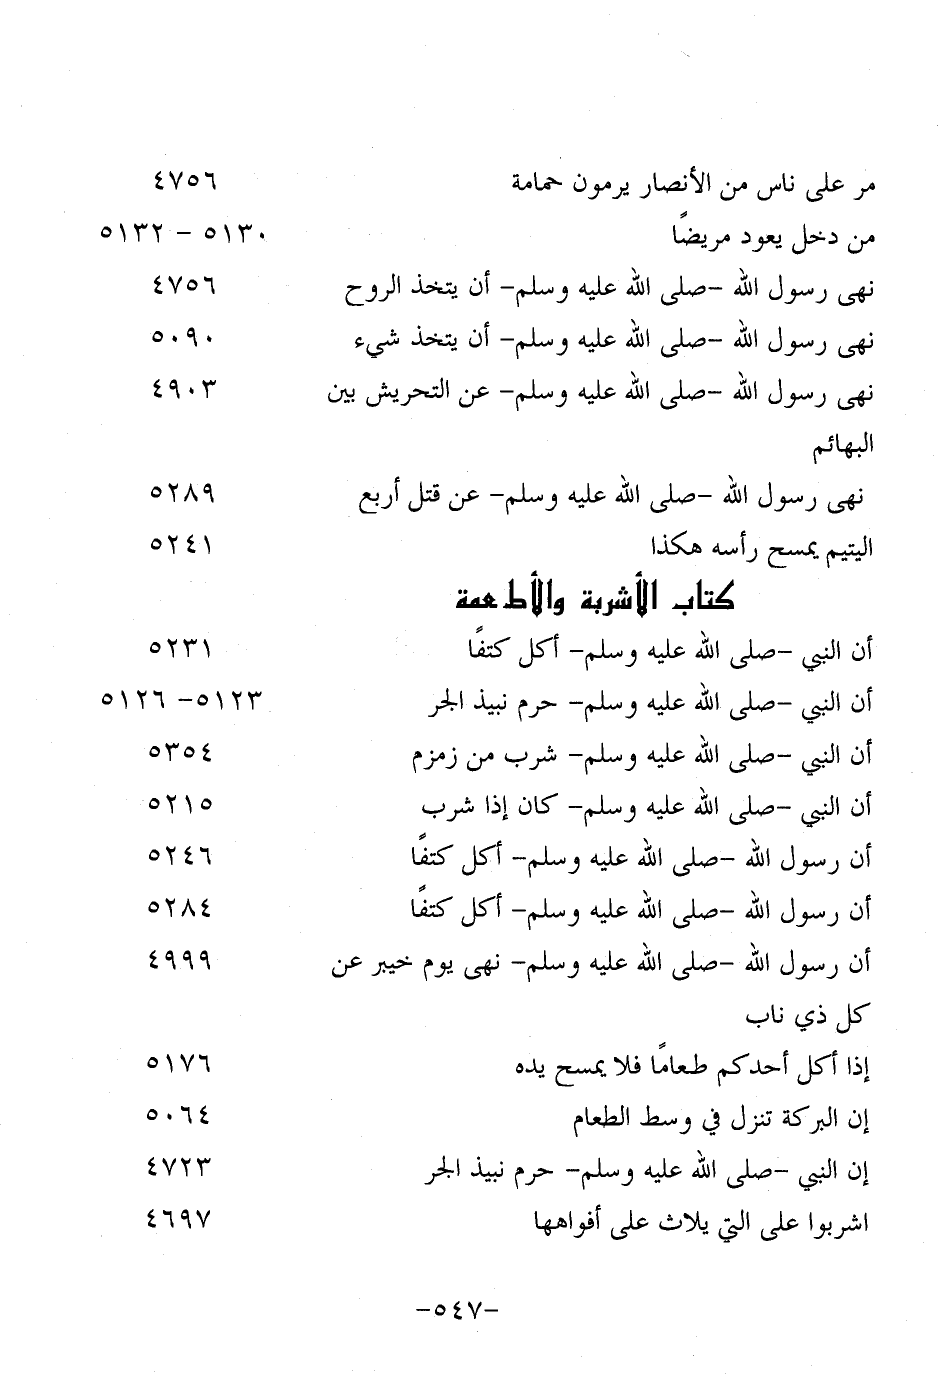 مر على ناس من الأنصار يرمون حمامة ٤٧٥٦
من دخل يعود مريضًا ٥١٣٠ – ٥١٣٢
نهى رسول الله –صلى الله عليه وسلم– أن يتخذ الروح ٤٧٥٦
نهى رسول الله –صلى الله عليه وسلم– أن يتخذ شيء ٥٠٩٠
نهى رسول الله –صلى الله عليه وسلم– عن التحريش بين ٤٩٠٣
البهائم
نهى رسول الله –صلى الله عليه وسلم– عن قتل أربع ٥٢٨٩
اليتيم يمسح رأسه هكذا ٥٢٤١
كتاب الأشربة والأطعمة
أن النبي –صلى الله عليه وسلم– أكل كتفًا ٥٢٣١
أن النبي –صلى الله عليه وسلم– حرم نبيذ الجر ٥١٢٣– ٥١٢٦
أن النبي –صلى الله عليه وسلم– شرب من زمزم ٥٣٥٤
أن النبي –صلى الله عليه وسلم– كان إذا شرب ٥٢١٥
أن رسول الله –صلى الله عليه وسلم– أكل كتفًا ٥٢٤٦
أن رسول الله –صلى الله عليه وسلم– أكل كتفًا ٥٢٨٤
أن رسول الله –صلى الله عليه وسلم– نهى يوم خيبر عن ٤٩٩٩
كل ذي ناب
إذا أكل أحدكم طعامًا فلا يمسح يده ٥١٧٦
إن البركة تنزل في وسط الطعام ٥٠٦٤
إن النبي –صلى الله عليه وسلم– حرم نبيذ الجر ٤٧٢٣
اشربوا على التي يلاث على أفواهها ٤٦٩٧
–٥٤٧–